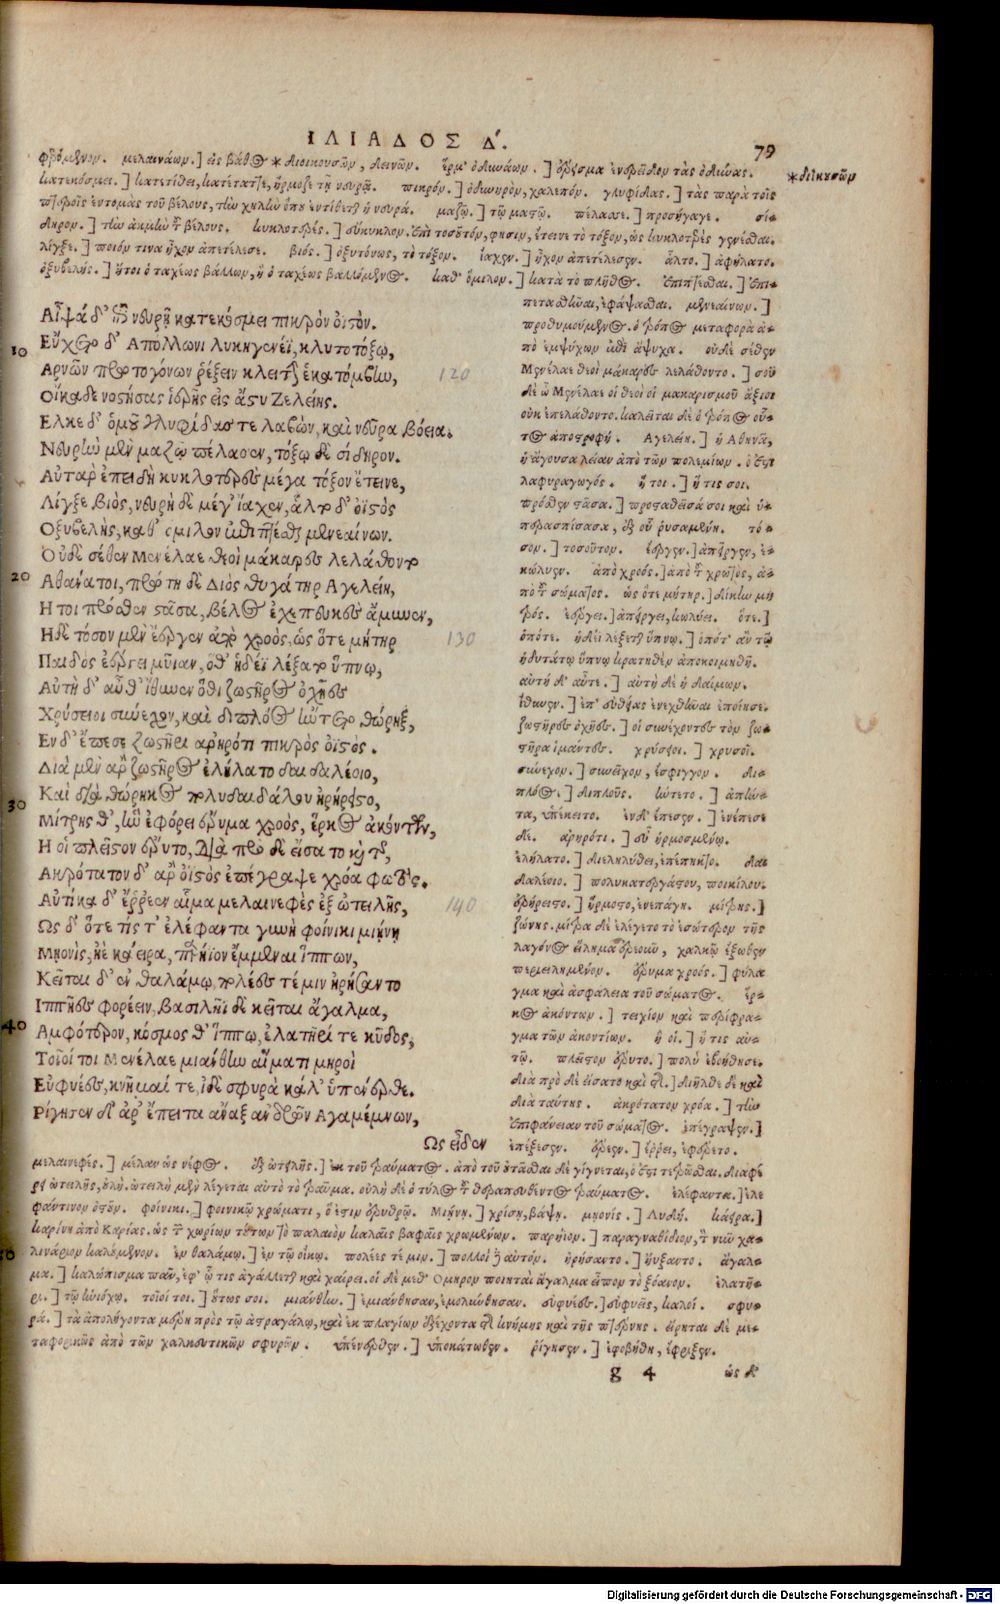 ΙΛΙΑΔΟΣ Δ.
79
φρόμενον. μελαινάων.] εἰς βάθος * διοικουσῶν, δεινῶν. ἕρμ' ὀδυνάων.] ἔρεισμα τὰς ὀδύνας.
* διηκουσῶν
κατεκόσμει.] κατετίθει, ἥρμοζε τῇ νευρᾷ. πικρόν.] ὀδυνηρὸν, χαλεπόν. γλυφίδας.] τὰς παρὰ τοῖς
ἐντομὰς τοῦ βέλους, τὴν χηλὴν ὅπου ἐντίθεται ἡ νευρά. μαζῷ.] τῷ μαστῷ. πέλασε.] προσήγαγε. σί-
δηρον.] τὴν ἀκμὴν τοῦ βέλους. κυκλοτερές.] εὔκυκλον. ἐπὶ τοσοῦτον, φησιν, ἔτεινε τὸ τόξον, ὡς κυκλοτερὲς γενέσθαι.
λίγξε.] ποιόν τινα ἦχον ἀπετέλεσε. βιός.] ὀξυτόνως, τὸ τόξον. ἴαχεν.] ἦχον ἀπετέλεσεν. ἆλτο.] ἀφήλατο.
ὀξυβελής.] ἤτοι ὁ ταχέως βάλλων, ἢ ὁ ταχέως βαλλόμενος. καθ' ὅμιλον.] κατὰ τὸ πλῆθος. ἐπιπτέσθαι.] ἐπι-
Αἶψα δ' ἐπὶ νευρῇ κατεκόσμει πικρὸν ὀϊστὸν.
10 Εὔχετο δ' Απόλλωνι λυκηγενέϊ, κλυτοτόξῳ,
Αρνῶν πρωτογόνων ῥέξειν κλειτὴν ἑκατόμβην, 120
Οἴκαδε νοστήσας ἱερῆς εἰς ἄστυ Ζελείης.
Ελκε δ' ὁμοῦ γλυφίδας τε λαβὼν, καὶ νεῦρα βόεια.
Νευρὴν μὲν μαζῷ πέλασεν, τόξῳ δὲ σίδηρον.
Αὐτὰρ ἐπειδὴ κυκλοτερὲς μέγα τόξον ἔτεινε,
Λίγξε βιὸς, νευρὴ δὲ μέγ' ἴαχεν, ἆλτο δ' ὀϊστὸς
Οξυβελὴς, καθ' ὅμιλον ἐπιπτέσθαι μενεαίνων.
Οὐδὲ σέθεν Μενέλαε θεοὶ μάκαρες λελάθοντο
20 Αθάνατοι, πρώτη δὲ Διὸς θυγάτηρ Αγελείη,
Η τοι πρόσθεν στᾶσα, βέλος ἐχεπευκὲς ἄμυνεν,
Ηδὲ τόσον μὲν ἔεργεν ἀπὸ χροὸς, ὡς ὅτε μήτηρ 130
Παιδὸς ἐέργει μυῖαν, ὅθ' ἡδέϊ λέξατο ὕπνῳ,
Αὐτὴ δ' αὖθ' ἴθυνεν ὅθι ζωστῆρος ὀχῆες
Χρύσειοι σύνεχον, καὶ διπλόος ἤντετο θώρηξ,
Εν δ' ἔπεσε ζωστῆρι ἀρηρότι πικρὸς ὀϊστὸς.
Διὰ μὲν ἂρ ζωστῆρος ἐλήλατο δαιδαλέοιο,
30 Καὶ διὰ θώρηκος πολυδαιδάλου ἠρήρειστο,
Μίτρης θ', ἣν ἐφόρει ἔρυμα χροὸς, ἕρκος ἀκόντων,
Η οἱ πλεῖστον ἔρυτο, διὰ πρὸ δὲ εἴσατο καὶ τῆς,
Ακρότατον δ' ἂρ ὀϊστὸς ἐπέγραψε χρόα φωτὸς.
Αὐτίκα δ' ἔρρεεν αἷμα μελαινεφὲς ἐξ ὠτειλῆς, 140
Ως δ' ὅτε τίς τ' ἐλέφαντα γυνὴ φοίνικι μιήνῃ
Μῃονὶς, ἠὲ κάειρα, παρήϊον ἔμμεναι ἵππων,
Κεῖται δ' ἐν θαλάμῳ, πολέες τέ μιν ἠρήσαντο
Ιππῆες φορέειν, βασιλῆϊ δὲ κεῖται ἄγαλμα,
40 Αμφότερον, κόσμος θ' ἵππῳ, ἐλατῆρί τε κῦδος,
Τοῖοί τοι Μενέλαε μιάνθην αἵματι μηροὶ
Εὐφυέες, κνῆμαί τε, ἰδὲ σφυρὰ κάλ' ὑπένερθε.
Ρίγησεν δ' ἀρ' ἔπειτα ἄναξ ἀνδρῶν Αγαμέμνων,
Ως εἶδεν
πετασθῆναι, ἐφάψασθαι. μενεαίνων.]
προθυμούμενος. ὁ τρόπος μεταφορὰ ἀ-
πὸ ἐμψύχων ἐπὶ ἄψυχα. οὐδὲ σέθεν
Μενέλαε θεοὶ μάκαρες λελάθοντο.] σοῦ
δὲ ὦ Μενέλαε οἱ θεοὶ οἱ μακαρισμοῦ ἄξιοι
οὐκ ἐπελάθοντο. καλεῖται δὲ ὁ τρόπος οὗ-
τος ἀποστροφή. Αγελείη.] ἡ Αθηνᾶ,
ἡ ἄγουσα λείαν ἀπὸ τῶν πολεμίων. ὅ ἐστι
λαφυραγωγός. ἥ τοι.] ἥ τις σοι.
πρόσθεν στᾶσα.] προσταθεῖσά σοι καὶ ὑ-
περασπίσασα, ἐξ οὗ ῥυσαμένη. τό-
σον.] τοσοῦτον. ἔεργεν.] ἀπεῖργεν, ἐ-
κώλυεν. ἀπὸ χροός.] ἀπὸ τοῦ χρωτὸς, ἀ-
πὸ τοῦ σώματος. ὡς ὅτε μήτηρ.] δίκην μη
τρός. ἐέργει.] ἀπείργει, κωλύει. ὅτε.]
ὁπότε. ἡδέϊ λέξεται ὕπνῳ.] ὁπότ' ἂν τῷ
ἡδυτάτῳ ὕπνῳ κρατηθὲν ἀποκοιμηθῇ.
αὐτὴ δ' αὖτε.] αὐτὴ δὲ ἡ δαίμων.
ἴθυνεν.] ἐπ' εὐθείας ἐνεχθῆναι ἐποίησε.
ζωστῆρος ὀχῆες.] οἱ συνέχοντες τὸν ζω-
στῆρα ἱμάντες. χρύσειοι.] χρυσοῖ.
σύνεχον.] συνεῖχον, ἔσφιγγον. δι-
πλόος.] διπλοῦς. ἤντετο.] ἀπήν-
τα, ὑπέκειτο. ἐν δ' ἔπεσεν.] ἐνέπεσε
δέ. ἀρηρότι.] εὖ ἡρμοσμένῳ.
ἐλήλατο.] διεληλύθει, ἐπεπήκτο. δαι-
δαλέοιο.] πολυκατεργάστου, ποικίλου.
ἐρήρειστο.] ἥρμοστο, ἐνεπάγη. μίτρης.]
ζώνης. μίτρα δὲ ἐλέγετο τὸ ἐσώτερον τῆς
λαγόνος εἴλημα ἐρεοῦν, χαλκῷ ἔξωθεν
περιειλημένον. ἔρυμα χροός.] φύλα
γμα καὶ ἀσφάλεια τοῦ σώματος. ἕρ-
κος ἀκόντων.] τειχίον καὶ περίφρα-
γμα τῶν ἀκοντίων. ἥ οἱ.] ἥ τις αὐ-
τῷ. πλεῖστον ἔρυτο.] πολὺ ἐβοήθησε.
διὰ πρὸ δὲ εἴσατο καὶ τῆς.] διῆλθε δὲ καὶ
διὰ ταύτης. ἀκρότατον χρόα.] τὴν
ἐπιφάνειαν τοῦ σώματος. ἐπέγραψεν.]
ἐπέξεσεν. ἔρεεν.] ἔρρει, ἐφέρετο.
μελαινεφές.] μέλαν ὡς νέφος. ἐξ ὠτειλῆς.] ἐκ τοῦ τραύματος. ἀπὸ τοῦ οὐτᾶσθαι δὲ γίγνεται, ὅ ἐστι τετρῶσθαι. διαφέ
ρει ὠτειλὴς, οὐλή. ὠτειλὴ μὲν λέγεται αὐτὸ τὸ τραῦμα. οὐλὴ δὲ ὁ τύλος τοῦ θεραπευθέντος τραύματος. ἐλέφαντα.] ἐλε
φάντινον ὀστέον. φοίνικι.] φοινικῷ χρώματι, ὅ ἐστιν ἐρυθρῷ. Μιήνῃ.] χρίσῃ, βάψῃ. μῃονίς.] Λυδή. κάειρα.]
καρίνη ἀπὸ Καρίας. ὡς τῶν χωρίων τούτων τὸ παλαιὸν καλαῖς βαφαῖς χρωμένων. παρήιον.] παραγναθίδιον, τὸ νῦν χα-
λινάριον καλούμενον. ἐν θαλάμῳ.] ἐν τῷ οἴκῳ. πολέες τέ μιν.] πολλοὶ δὲ αὐτόν. ἠρήσαντο.] ηὔξαντο. ἄγαλ-
μα.] καλώπισμα πᾶν, ἐφ' ᾧ τις ἀγάλλεται καὶ χαίρει. οἱ δὲ μεθ' Ομηρον ποιηταὶ ἄγαλμα εἶπον τὸ ξόανον. ἐλατῆ-
ρι.] τῷ ἡνιόχῳ. τοῖοί τοι.] οὕτως σοι. μιάνθην.] ἐμιάνθησαν, ἐμολύνθησαν. εὐφυέες.] εὐφυεῖς, καλοί. σφυ-
ρά.] τὰ ἀπολήγοντα μέρη πρὸς τῷ ἀστραγάλῳ, καὶ ἐκ πλαγίων ἐξέχοντα τῆς κνήμης καὶ τῆς πτέρνης. εἴρηται δὲ με-
ταφορικῶς ἀπὸ τῶν χαλκευτικῶν σφυρῶν. ὑπένερθεν.] ὑποκάτωθεν. ῥίγησεν.] ἐφοβήθη, ἔφριξεν.
g 4
ὡς δ'
Digitalisierung gefördert durch die Deutsche Forschungsgemeinschaft - DFG